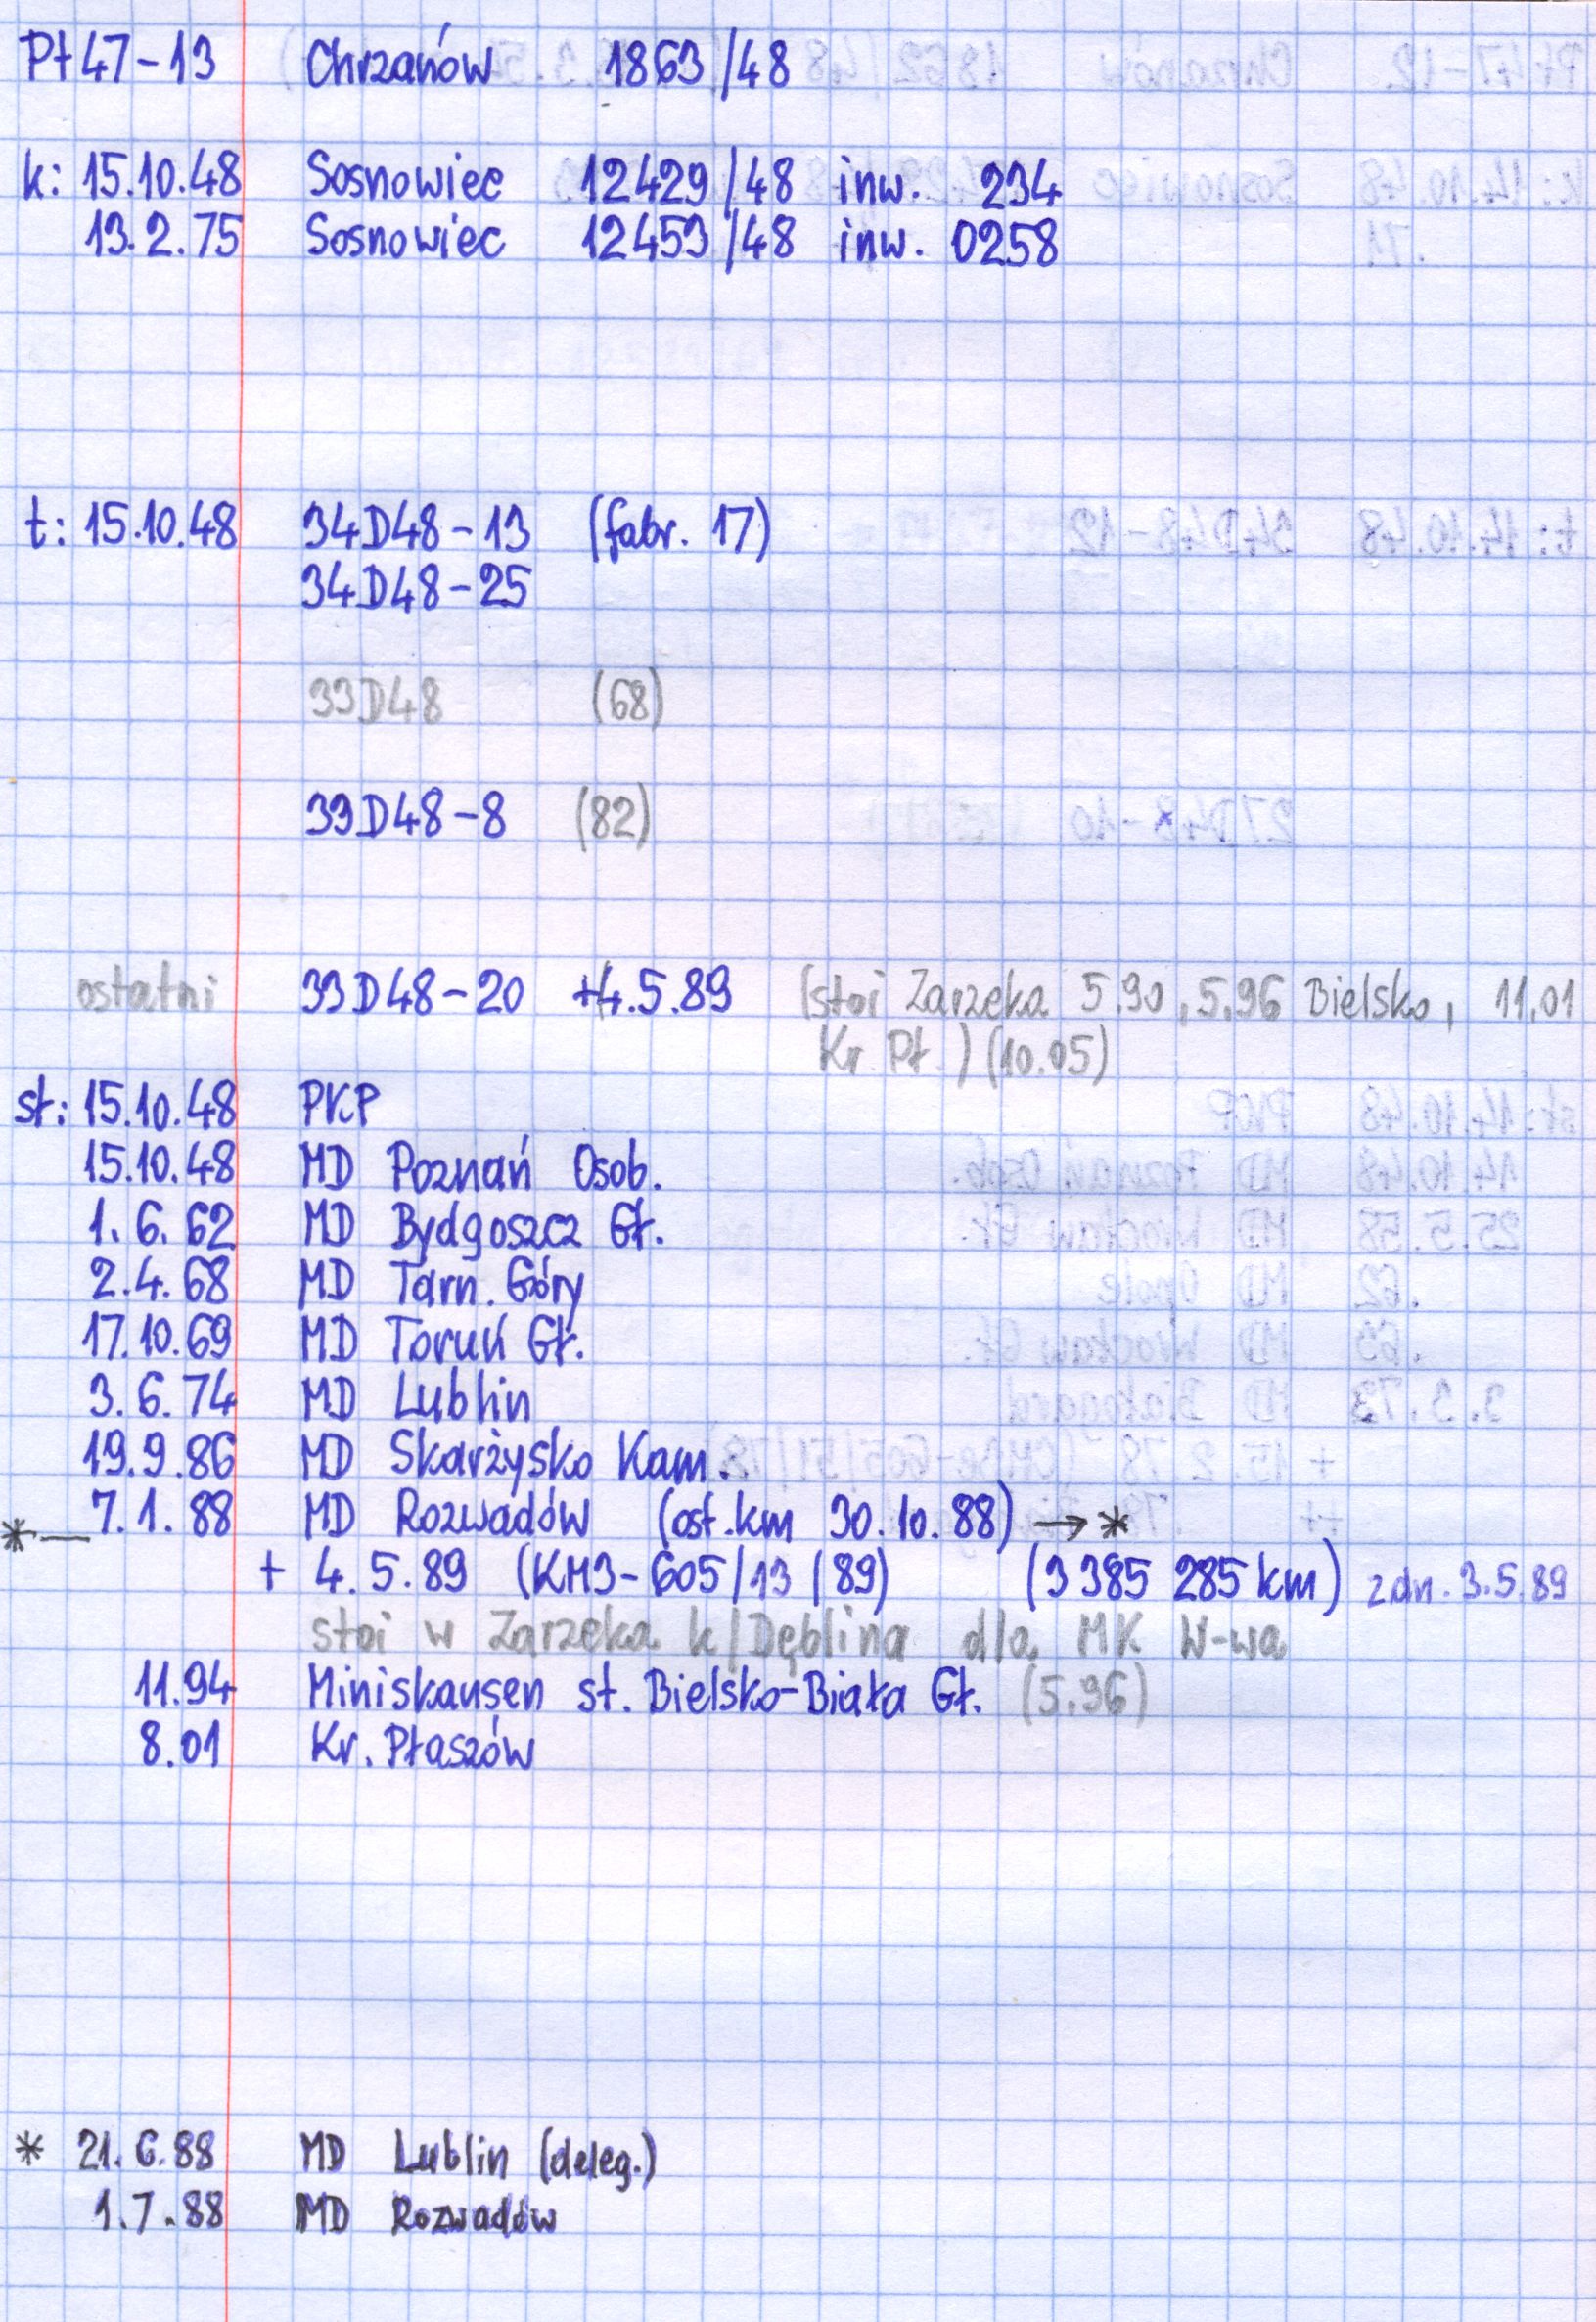 Pt47-13 Chrzanów 1863/48
k: 15.10.48 Sosnowiec 12429/48 inw. 234
13.2.75 Sosnowiec 12453/48 inw. 0258
t: 15.10.48 34D48-13 (fabr. 17)
34D48-25
33D48 (68)
33D48-8 (82)
ostatni 33D48-20 +4.5.89 (stoi Zarzeka 5.90, 5.96 Bielsko, 11.01
Kr. Pł.) (10.05)
st: 15.10.48 PKP
15.10.48 MD Poznań Osob.
1.6.62 MD Bydgoszcz Gł.
2.4.68 MD Tarn. Góry
17.10.69 MD Toruń Gł.
3.6.74 MD Lublin
19.9.86 MD Skarżysko Kam.
*— 7.1.88 MD Rozwadów (ost.km 30.10.88) → *
+ 4.5.89 (KM3-605/13/89) (3 385 285 km) z dn. 3.5.89
stoi w Zarzeka k/Dęblina dla MK W-wa
11.94 Miniskansen st. Bielsko-Biała Gł. (5.96)
8.01 Kr. Płaszów
* 21.6.88 MD Lublin (deleg.)
1.7.88 MD Rozwadów